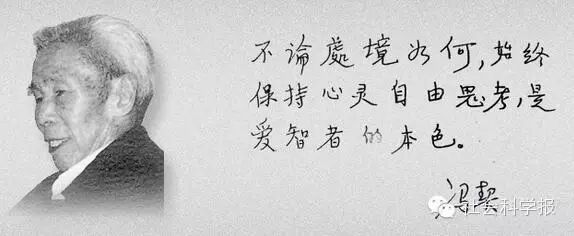 不論處境如何,始终
保持心灵自由思考,是
爱智者的本色。
冯契
社会科学报